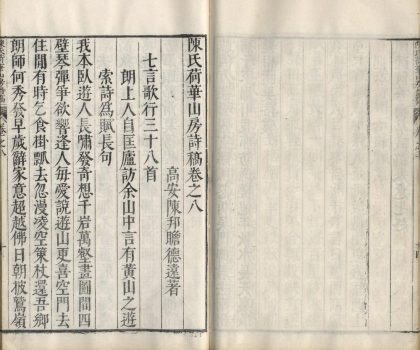 陳氏荷華山房詩稿卷之八
高安陳邦瞻德遠著
七言歌行三十八首
朗上人自匡廬訪余山中言有黃山之遊
索詩為賦長句
我本臥遊人長嘯發奇想千岩萬壑畫圖間四
壁琴彈爭欲響逢人每愛說遊山更喜空門去
住閒有時乞食掛瓢去忽漫凌空策杖還吾鄉
朗師何秀發早歲辭家意超越佛日朝披鷲嶺